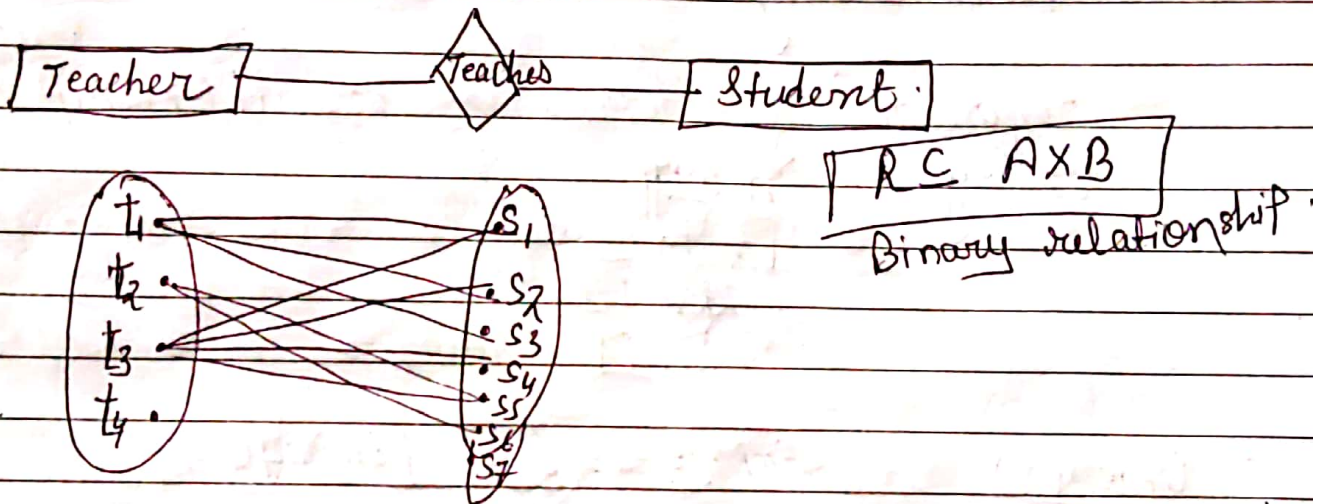 Teacher Teaches Student
R ⊆ A×B
Binary relationship
t1 S1
t2 S2
t3 S3
S4
t4 S5
S6
S7